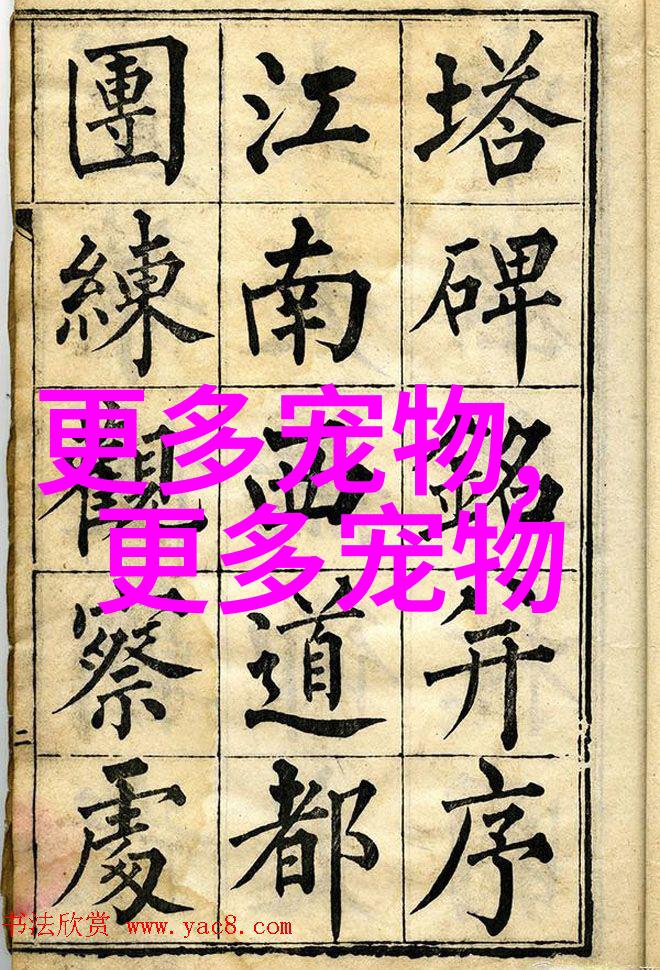 塔碑銘并序
江南西道都
團練觀察處
二
更多宠物,
更多宠物
书法欣赏 www.yac8.com